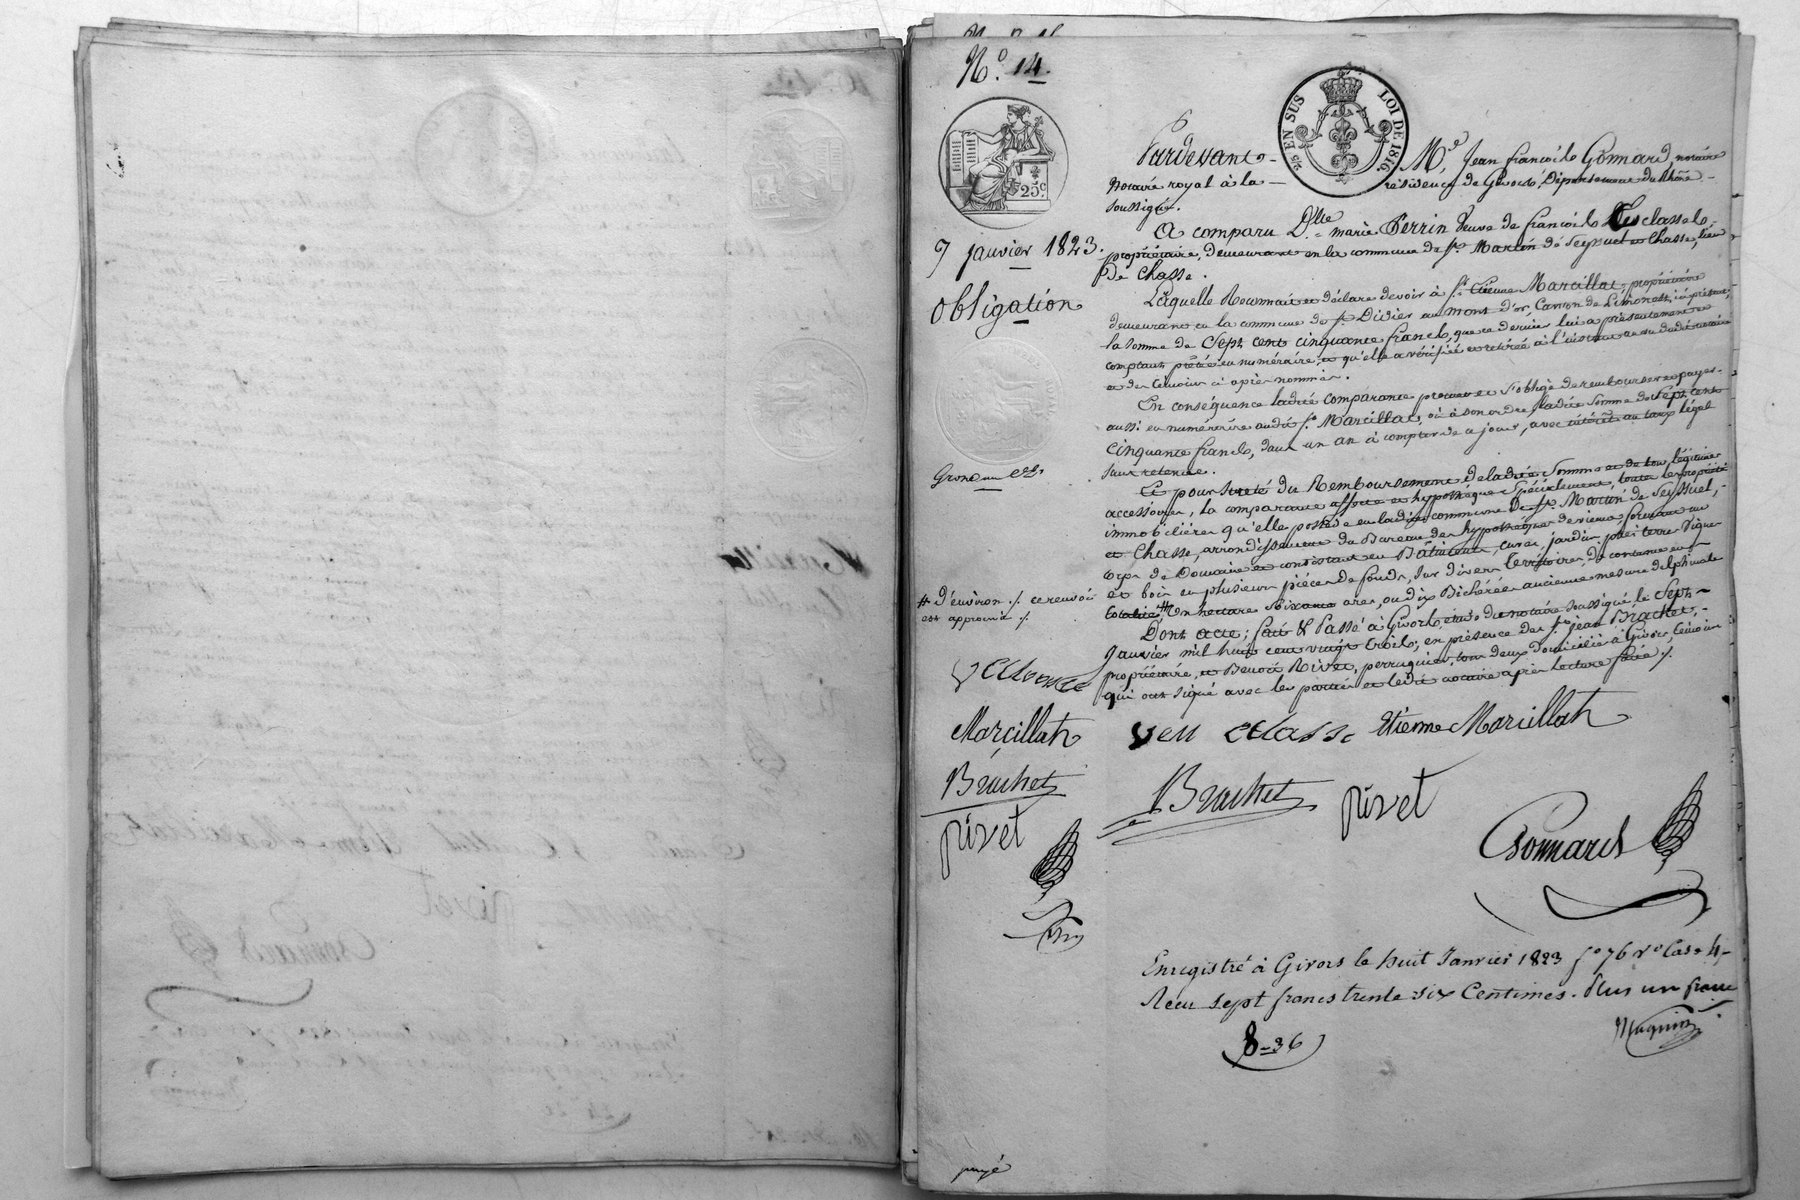 N.° 14.
25 EN SUS LOI DE 1816.
25.c
7 janvier 1823.
Obligation
Pardevant M.e Jean françois Gonnard, notaire
Notaire royal à la résidence de Givors, Département du Rhône
soussigné.
A comparu D.lle marie Perrin Veuve de françois Esclassés
propriétaire, demeurant en la commune de S.t Martin de Seyssuel et Chasse, lieu
de Chasse.
Laquelle Reconnait et déclare devoir à S.r Etienne Marcillat, propriétaire
demeurant en la commune de S.t Didier au mont d'or, Canton de Limonest, ici présent,
la somme de Sept cent cinquante francs, que ce dernier lui a présentement et
comptant prêtée en numéraire, et qu'elle a vérifiée et retirée à l'instant au vu dudit notaire
et des témoins ci après nommés.
En conséquence ladite comparante promet et s'oblige de rembourser et payer
aussi en numéraire audit S.r Marcillat, où à son ordre, ladite somme de Sept cent
cinquante francs, dans un an à compter de ce jour, avec intérêt au taux légal
sans retenue.
Et pour Sureté du Remboursement de ladite Somme et de tous légitimes
accessoires, la comparante affecte et hypothèque Spécialement, toute les propriété
immobilières qu'elle possède en ladite commune de S.t Martin de Seyssuel,
et Chasse, arrondissement du Bureau des hypothèques de vienne, formant un
corps de Domaine et consistant en Bâtiments, cours, jardin, prés terre Vigne
et bois en plusieurs pièces de fonds, Sur divers territoires, de contenue en
totalité # Un hectare Soixante ares, ou dix Bicherées ancienne mesure delphinale
# d'environ ./. ce renvoi
est approuvé ./.
Dont acte; fait & Passé à Givors, étude du notaire Soussigné, le Sept
Janvier mil huit cent vingt trois; en présence des S.rs jean Brachet,
propriétaire, et Benoit Rivet, perruquier, tous deux domiciliés à Givors, témoins
qui ont signé avec les parties et ledit notaire après lecture faite ./.
Marcillat
veu eclasse Etienne Marcillat
Brachet
Brachet rivet
rivet
Gonnard
Enregistré à Givors le huit Janvier 1823 f.o 76 v.o Case 4,
Reçu sept francs trente six Centimes. Plus un franc
8-36
payé